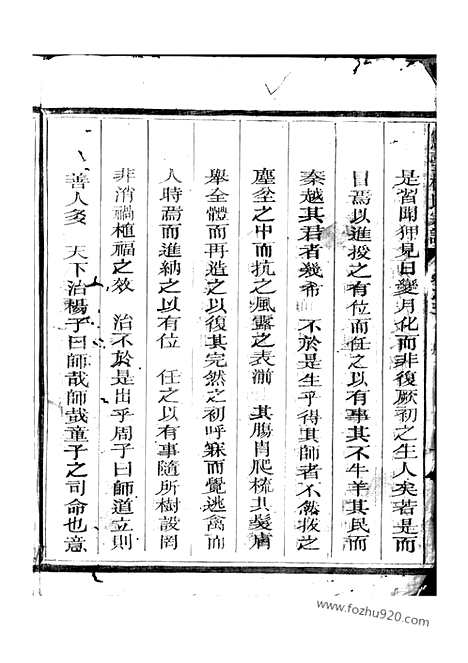 是習聞狎見日變月化而非復厥初之生人矣若是而
目焉以進授之有位而任之以有事其不牛羊其民而
秦越其君者幾希 不於是生乎得其師者不然拔之
塵坌之中而抗之風露之表湔 其腸胃爬梳其髮膚
舉全體而再造之以復其完然之初呼寐而覺逃禽而
人時焉而進納之以有位 任之以有事隨所樹設罔
非消禍植福之效 治不於是出乎周子曰師道立則
善人多 天下治楊子曰師哉師哉童子之司命也意
www.fozhu920.com